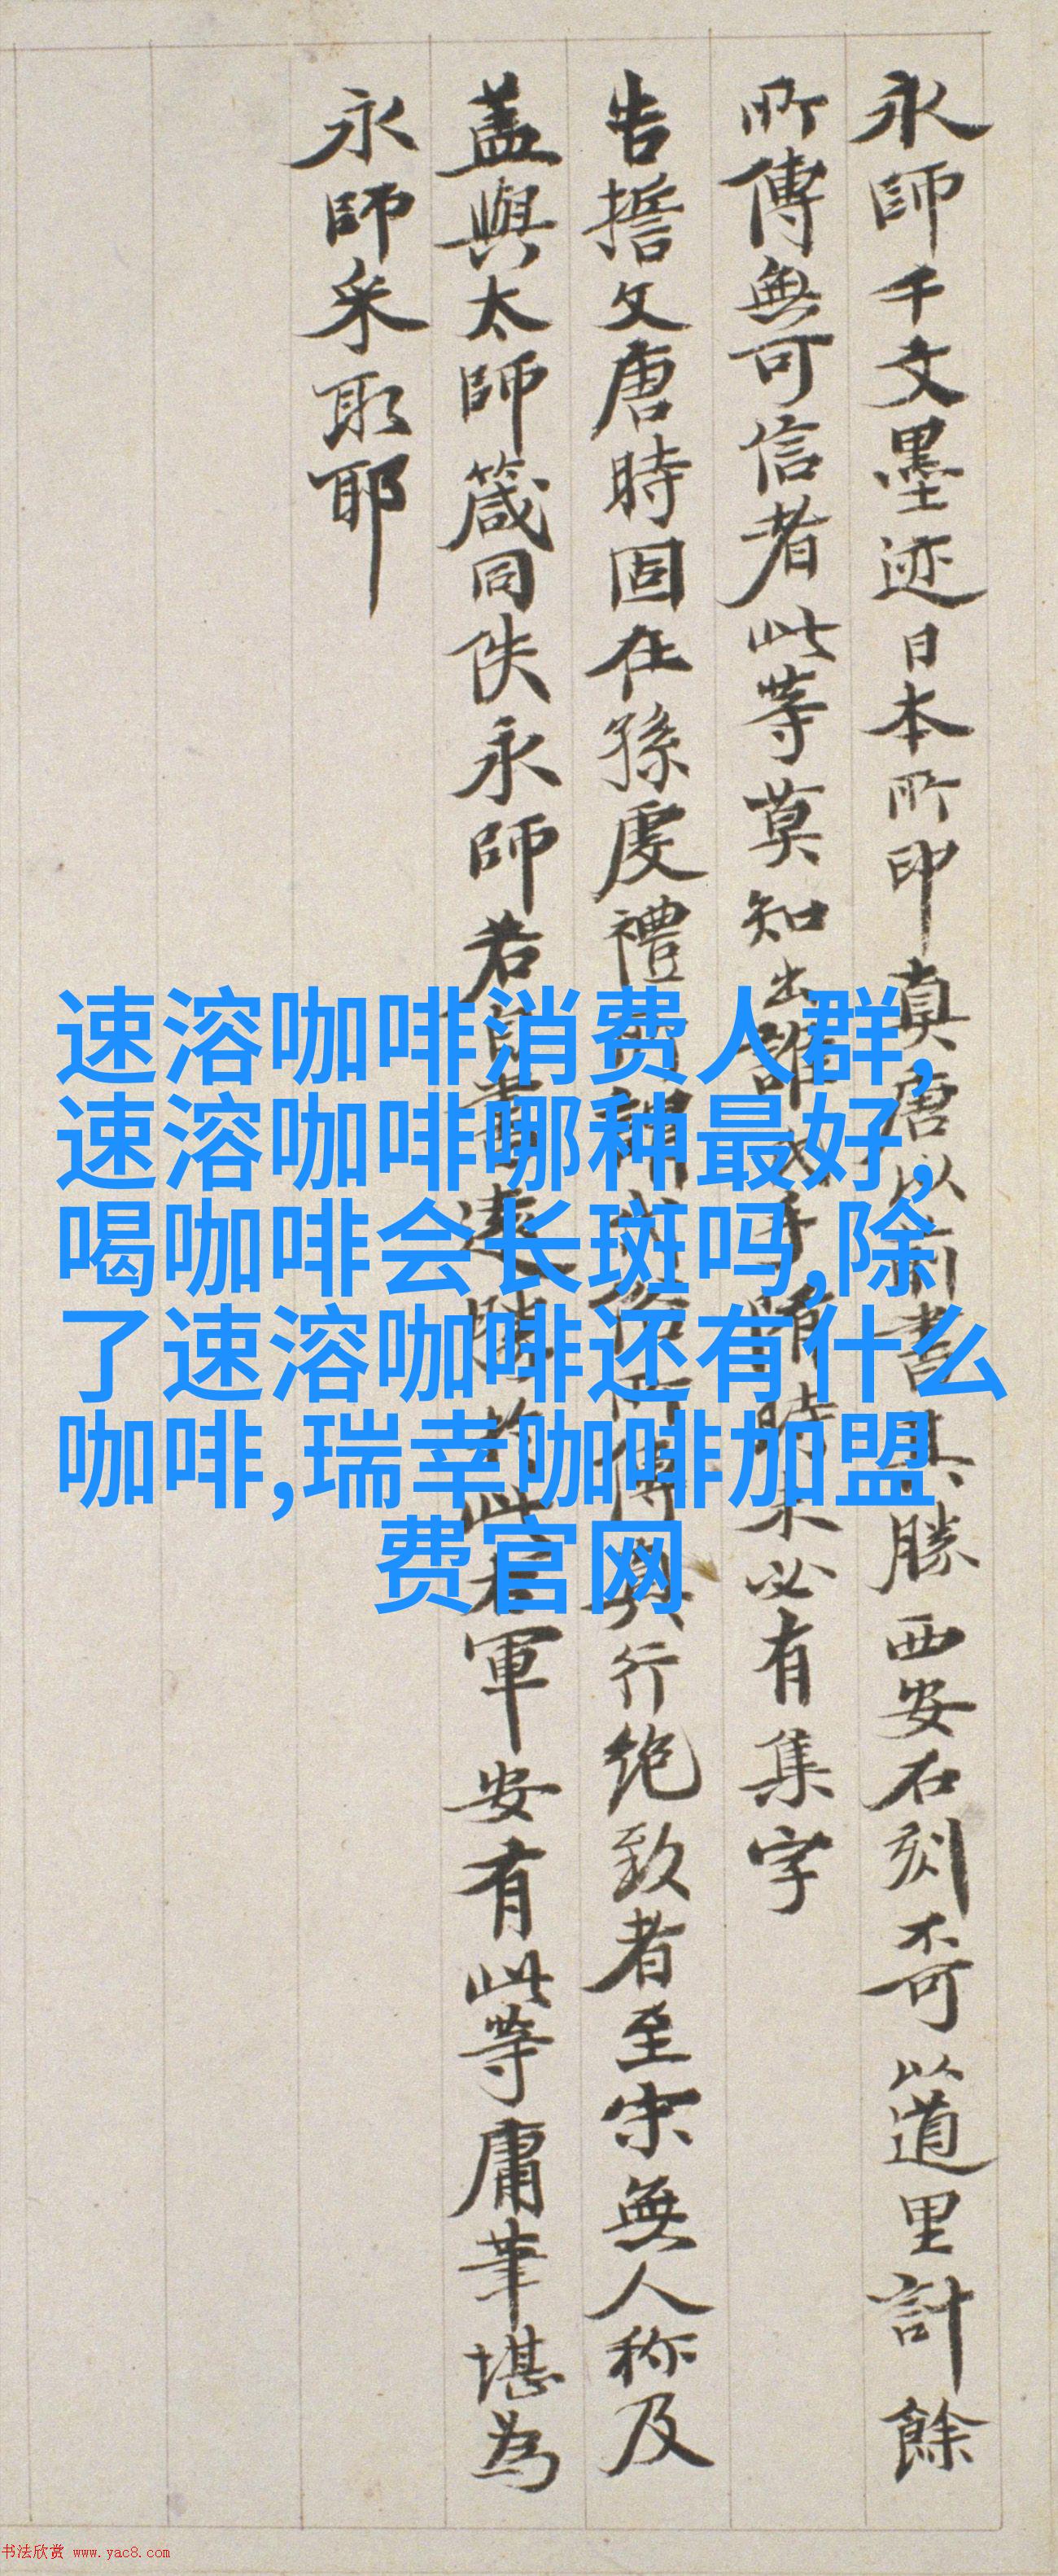 永師千文墨迹日本所印真唐以前書其勝西安石刻不可以道里計餘
所傳無可信者此等莫知出誰氏手隋時未必有集字
告擔文唐時固在孫虔禮行絶致者至宋無人称及
盖與太師箴同佚永師若軍安有此等庸筆堪為
永師采取耶
速溶咖啡消费人群,
速溶咖啡哪种最好,
喝咖啡会长斑吗,除
了速溶咖啡还有什么
咖啡,瑞幸咖啡加盟
费官网
书法欣赏 www.yac8.com